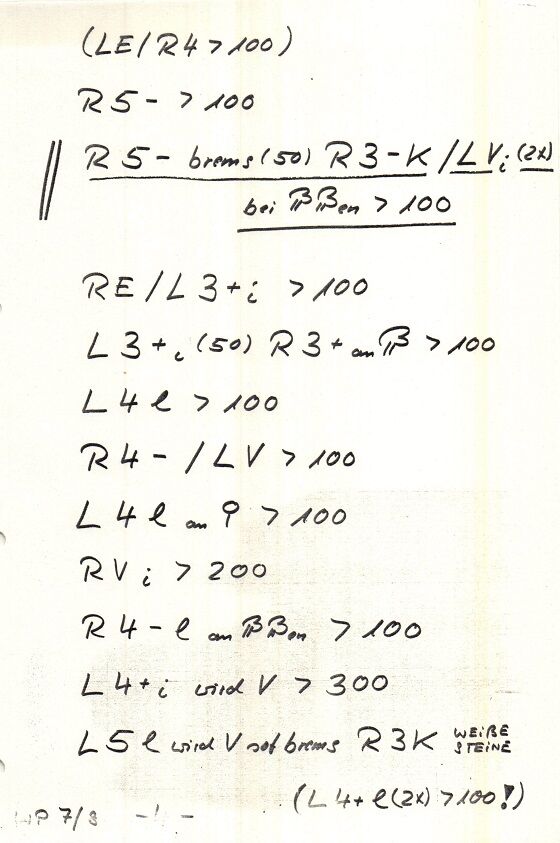 (LE/R4 > 100)
R5- > 100
R5- brems (50) R3-K / LVi (2x)
bei BBen > 100
RE/L3+i > 100
L3+i (50) R3+ an B > 100
L4l > 100
R4-/LV > 100
L4l an > 100
RVi > 200
R4-l an BBen > 100
L4+i wird V > 300
L5l wird V sof brems R3K WEIßE STEINE
(L4+l (2x) > 100!)
WP 7/3